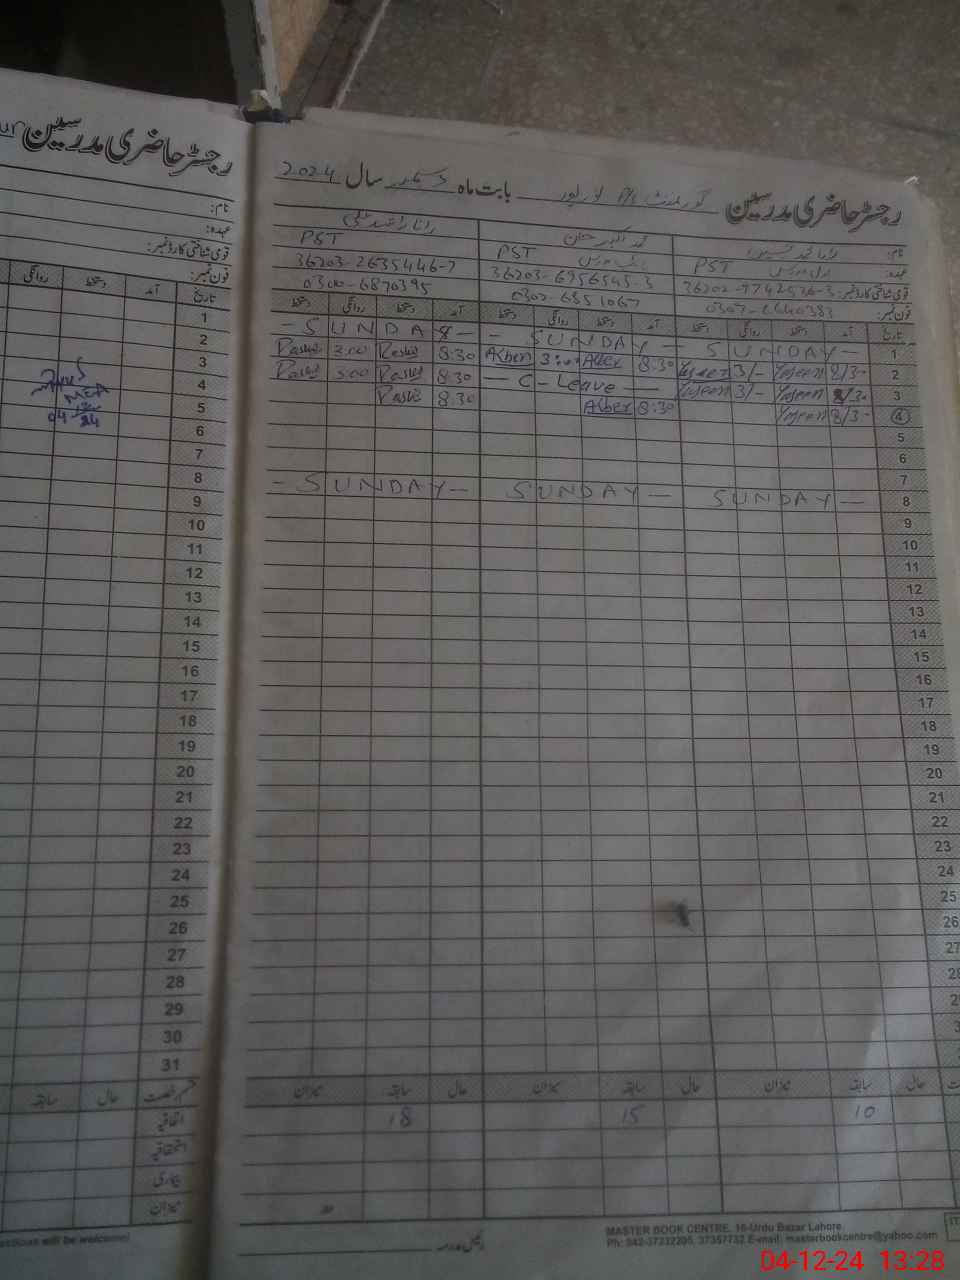 رجسٹر حاضری مدرسین
نام:
عہدہ:
قومی شناختی کارڈ نمبر:
فون نمبر:
تاریخ آمد دستخط روانگی
1
2
3
4
5
04 24
6
7
8
9
10
11
12
13
14
15
16
17
18
19
20
21
22
23
24
25
26
27
28
29
30
31
قسم رخصت حال سابقہ
اتفاقیہ
استحقاقیہ
بیماری
میزان
رجسٹر حاضری مدرسین گورنمنٹ P/S بابت ماہ دسمبر سال 2024
نام: محمد اکبر خان
عہدہ: PST PST PST
قومی شناختی کارڈ نمبر: 36203-6956545-3 36203-2635446-7
فون نمبر: 0302-6551067 0300-6870395
تاریخ آمد دستخط روانگی دستخط آمد دستخط روانگی دستخط آمد دستخط روانگی دستخط
1 - SUNDAY - - SUNDAY - - SUNDAY -
2 8/3- Yaseen 3/- Yaseen 8:30 Akber 3:00 Akber 8:30 Rashid 3:00 Rashid
3 8/30 Yaseen 3/- Yaseen - C - Leave - 8:30 Rashid 3:00 Rashid
4 8/3- Yaseen 8:30 Akber 8:30 Rashid
5
6
7
8 SUNDAY - SUNDAY - - SUNDAY -
9
10
11
12
13
14
15
16
17
18
19
20
21
22
23
24
25
26
27
حال سابقہ میزان حال سابقہ میزان حال سابقہ میزان
10 15 18
MASTER BOOK CENTRE, 16-Urdu Bazar Lahore.
Ph: 042-37232205, 37357732 E-mail: masterbookcentre@yahoo.com
04-12-24 13:28